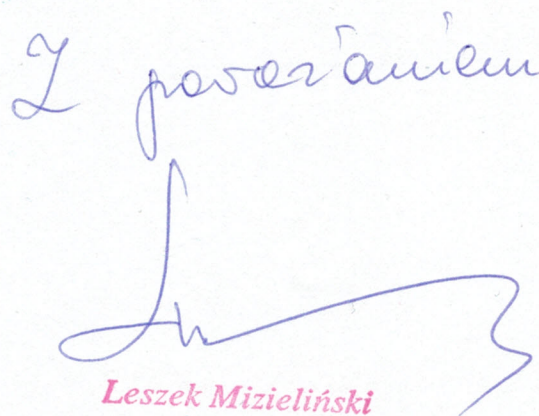 Z poważaniem
Leszek Mizieliński